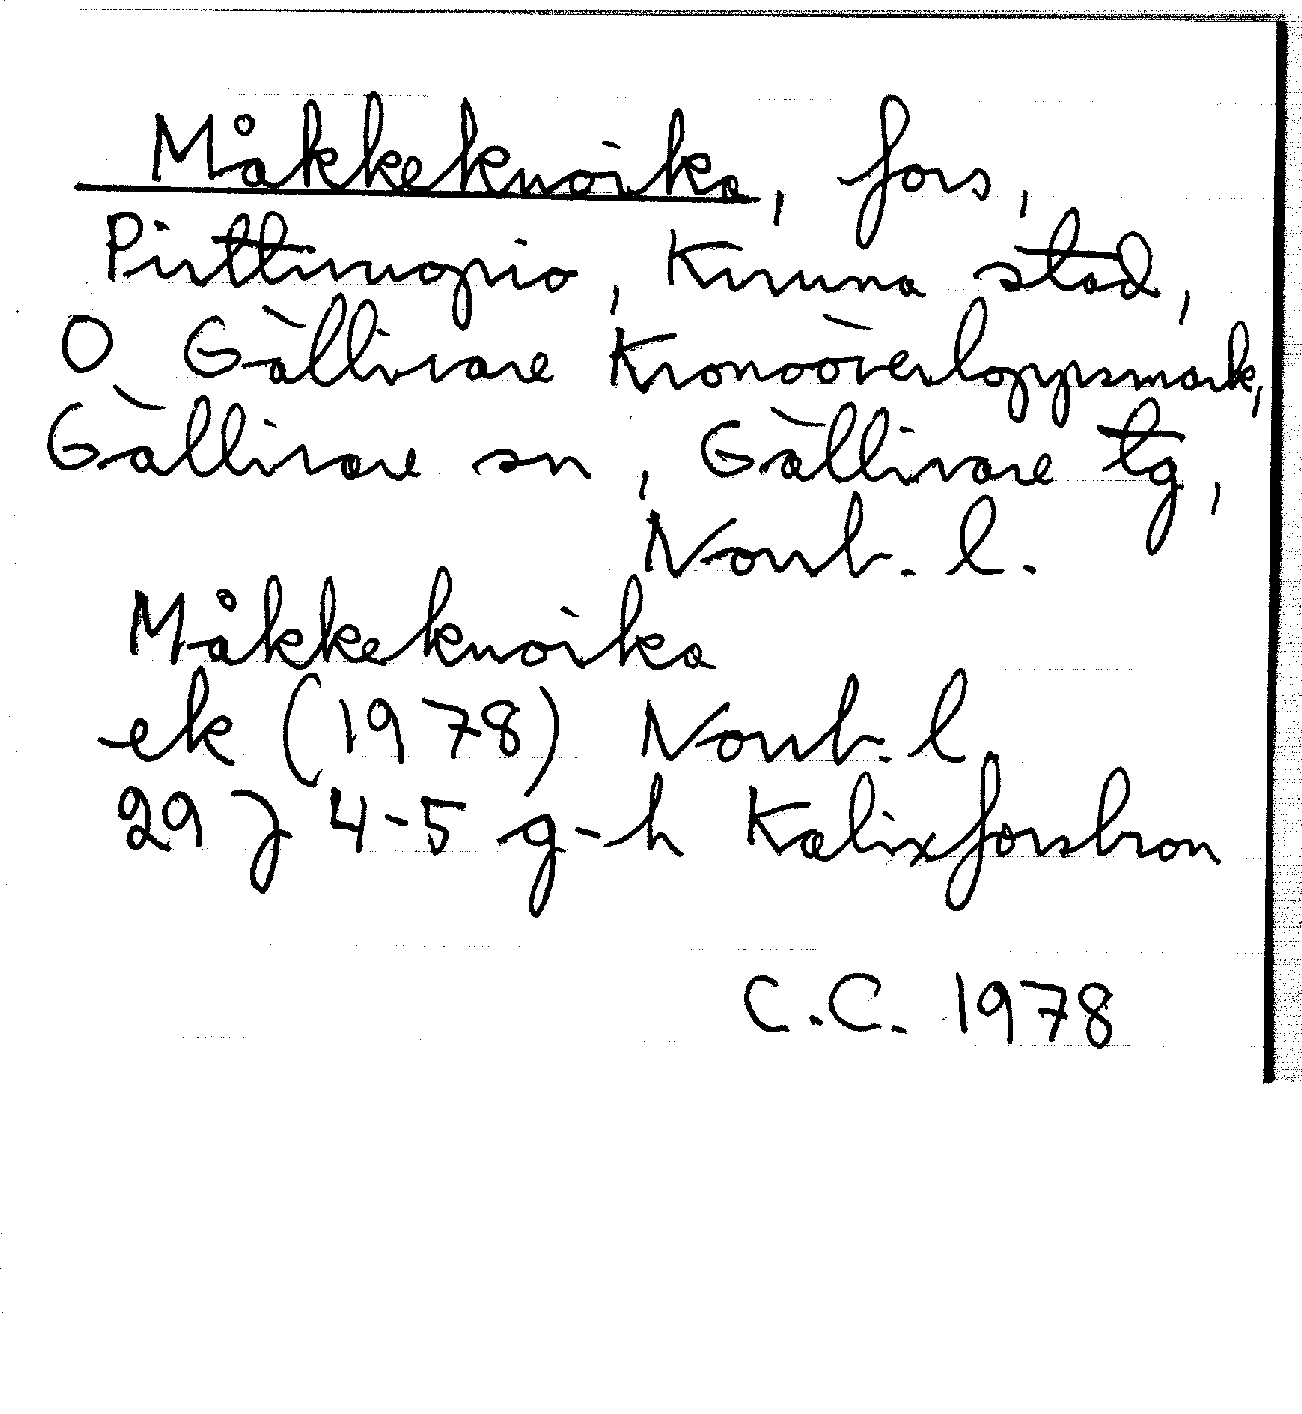 Måkkekuoika, fors,
Pirttivuopio, Kiruna stad,
O Gällivare Kronoöverloppsmark,
Gällivare sn, Gällivare tg,
Norrb. l.
Måkkekuoika
ek (1978) Norrb. l.
29 J 4-5 g-h Kalixforsbron
C.C. 1978